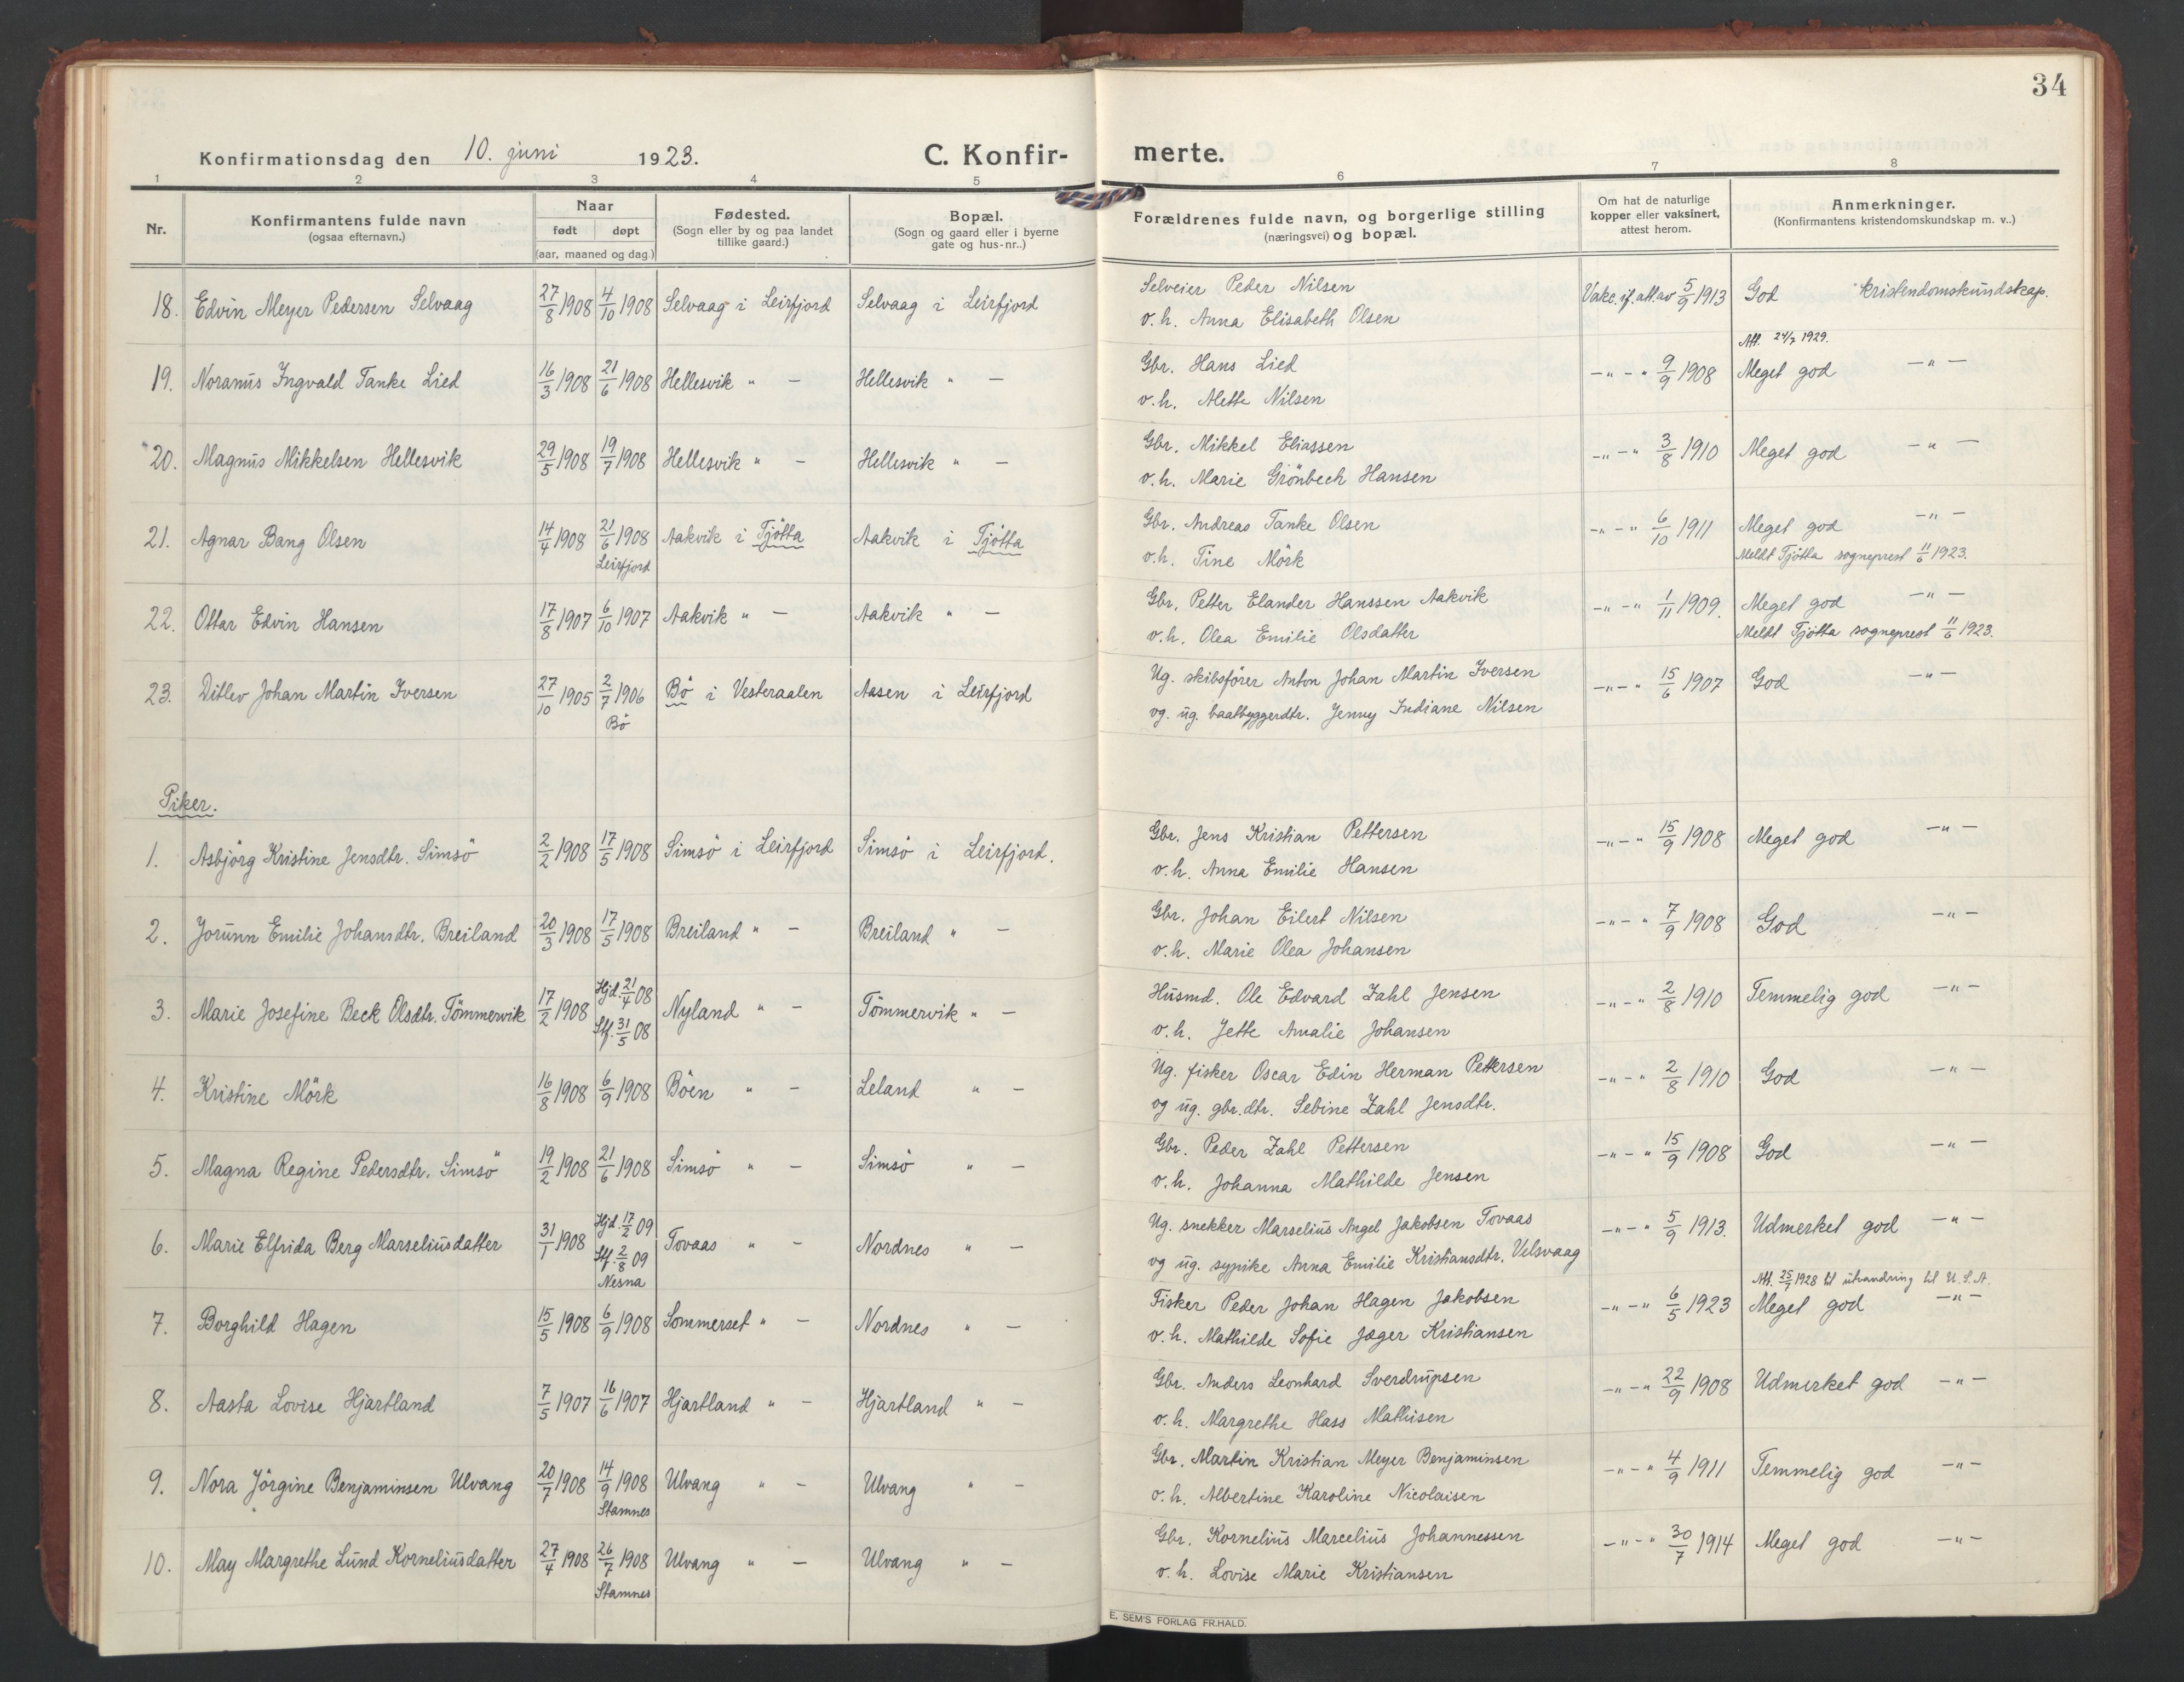 34
Konfirmationsdag den 10. juni 1923. C. Konfirmerte.
1 2 3 4 5 6 7 8
Nr. Konfirmantens fulde navn (ogsaa efternavn.) Naar født døpt (aar, maaned og dag.) Fødested. (Sogn eller by og paa landet tillike gaard.) Bopæl. (Sogn og gaard eller i byerne gate og hus-nr..) Forældrenes fulde navn, og borgerlige stilling (næringsvei) og bopæl. Om hat de naturlige kopper eller vaksinert, attest herom. Anmerkninger. (Konfirmantens kristendomskundskap m. v..)
18. Edvin Meyer Pedersen Selvaag 27/8 1908 4/10 1908 Selvaag i Leirfjord Selvaag i Leirfjord Selveier Peder Nilsen Vakc. if. att. av 5/9 1913 God kristendomskundskap.
o. h. Anna Elisabeth Olsen
Att. 24/7 1929.
19. Noranus Ingvald Tanke Lied 16/3 1908 21/6 1908 Hellesvik " - Hellesvik " - Gbr. Hans Lied -"-" 9/9 1908 Meget god -"-
o. h. Alette Nilsen
20. Magnus Mikkelsen Hellesvik 29/5 1908 19/7 1908 Hellesvik " - Hellesvik " - Gbr. Mikkel Eliassen -"-" 3/8 1910 Meget god -"-
o. h. Marie Grönbech Hansen
21. Agnar Bang Olsen 14/4 1908 21/6 1908 Leirfjord Aakvik i Tjötta Aakvik i Tjötta Gbr. Andreas Tanke Olsen -"-" 6/10 1911 Meget god -"-
o. h. Tine Mörk Meldt Tjötta sogneprest 11/6 1923.
22. Ottar Edvin Hansen 17/8 1907 6/10 1907 Aakvik " - Aakvik " - Gbr. Petter Elander Hanssen Aakvik -"-" 1/11 1909. Meget god -"-
o. h. Olea Emilie Olsdatter Meldt Tjötta sogneprest 11/6 1923.
23. Ditlev Johan Martin Iversen 27/10 1905 2/7 1906 Bö Bö i Vesteraalen Aasen i Leirfjord Ug. skibsförer Anton Johan Martin Iversen -"-" 15/6 1907 God -"-
og. ug. baatbyggerdtr. Jenny Indiane Nilsen
Piker.
1. Asbjörg Kristine Jensdtr. Simsö 2/2 1908 17/5 1908 Simsö i Leirfjord Simsö i Leirfjord. Gbr. Jens Kristian Pettersen -"-" 15/9 1908 Meget god -"-
o. h. Anna Emilie Hansen
2. Jorunn Emilie Johansdtr. Breiland 20/3 1908 17/5 1908 Breiland " - Breiland " - Gbr. Johan Eilert Nilsen -"-" 7/9 1908 God -"-
o. h. Marie Olea Johansen
3. Marie Josefine Beck Olsdtr. Tömmervik 17/2 1908 Hjd. 21/4 08 Stf. 31/5 08 Nyland " - Tömmervik " - Husmd. Ole Edvard Zahl Jensen -"-" 2/8 1910 Temmelig god -"-
o. h. Jette Amalie Johansen
4. Kristine Mörk 16/8 1908 6/9 1908 Böen " - Leland " - Ug. fisker Oscar Edin Herman Pettersen -"-" 2/8 1910 God -"-
og ug. gbr. dtr. Sebine Zahl Jensdtr.
5. Magna Regine Pedersdtr. Simsö 19/2 1908 21/6 1908 Simsö " - Simsö " - Gbr. Peder Zahl Pettersen -"-" 15/9 1908 God -"-
o. h. Johanna Mathilde Jensen
6. Marie Elfrida Berg Marseliusdatter 31/1 1908 Hjd. 17/2 09 Stf. 2/8 09 Nesna Tovaas " - Nordnes " - Ug. snekker Marselius Angel Jakobsen Tovaas -"-" 5/9 1913. Udmerket god -"-
og ug. sypike Anna Emilie Kristiansdtr. Velsvaag
Att. 25/7 1928 til utvandring til U. S. A.
7. Borghild Hagen 15/5 1908 6/9 1908 Sommerset " - Nordnes " - Fisker Peder Johan Hagen Jakobsen -"-" 6/5 1923 Meget god -"-
o. h. Mathilde Sofie Jæger Kristiansen
8. Aasta Lovise Hjartland 7/5 1907 16/6 1907 Hjartland " - Hjartland " - Gbr. Anders Leonhard Sverdrupsen -"-" 22/9 1908 Udmerket god -"-
o. h. Margrethe Hass Mathisen
9. Nora Jörgine Benjaminsen Ulvang 20/7 1908 14/9 1908 Stamnes Ulvang " - Ulvang " - Gbr. Martin Kristian Meyer Benjaminsen -"-" 4/9 1911 Temmelig god -"-
o. h. Albertine Karoline Nicolaisen
10. May Margrethe Lund Korneliusdatter 27/4 1908 26/7 1908 Stamnes Ulvang " - Ulvang " - Gbr. Kornelius Marcelius Johannessen -"-" 30/7 1914 Meget god -"-
o. h. Lovise Marie Kristiansen
E. SEM'S FORLAG FR.HALD.